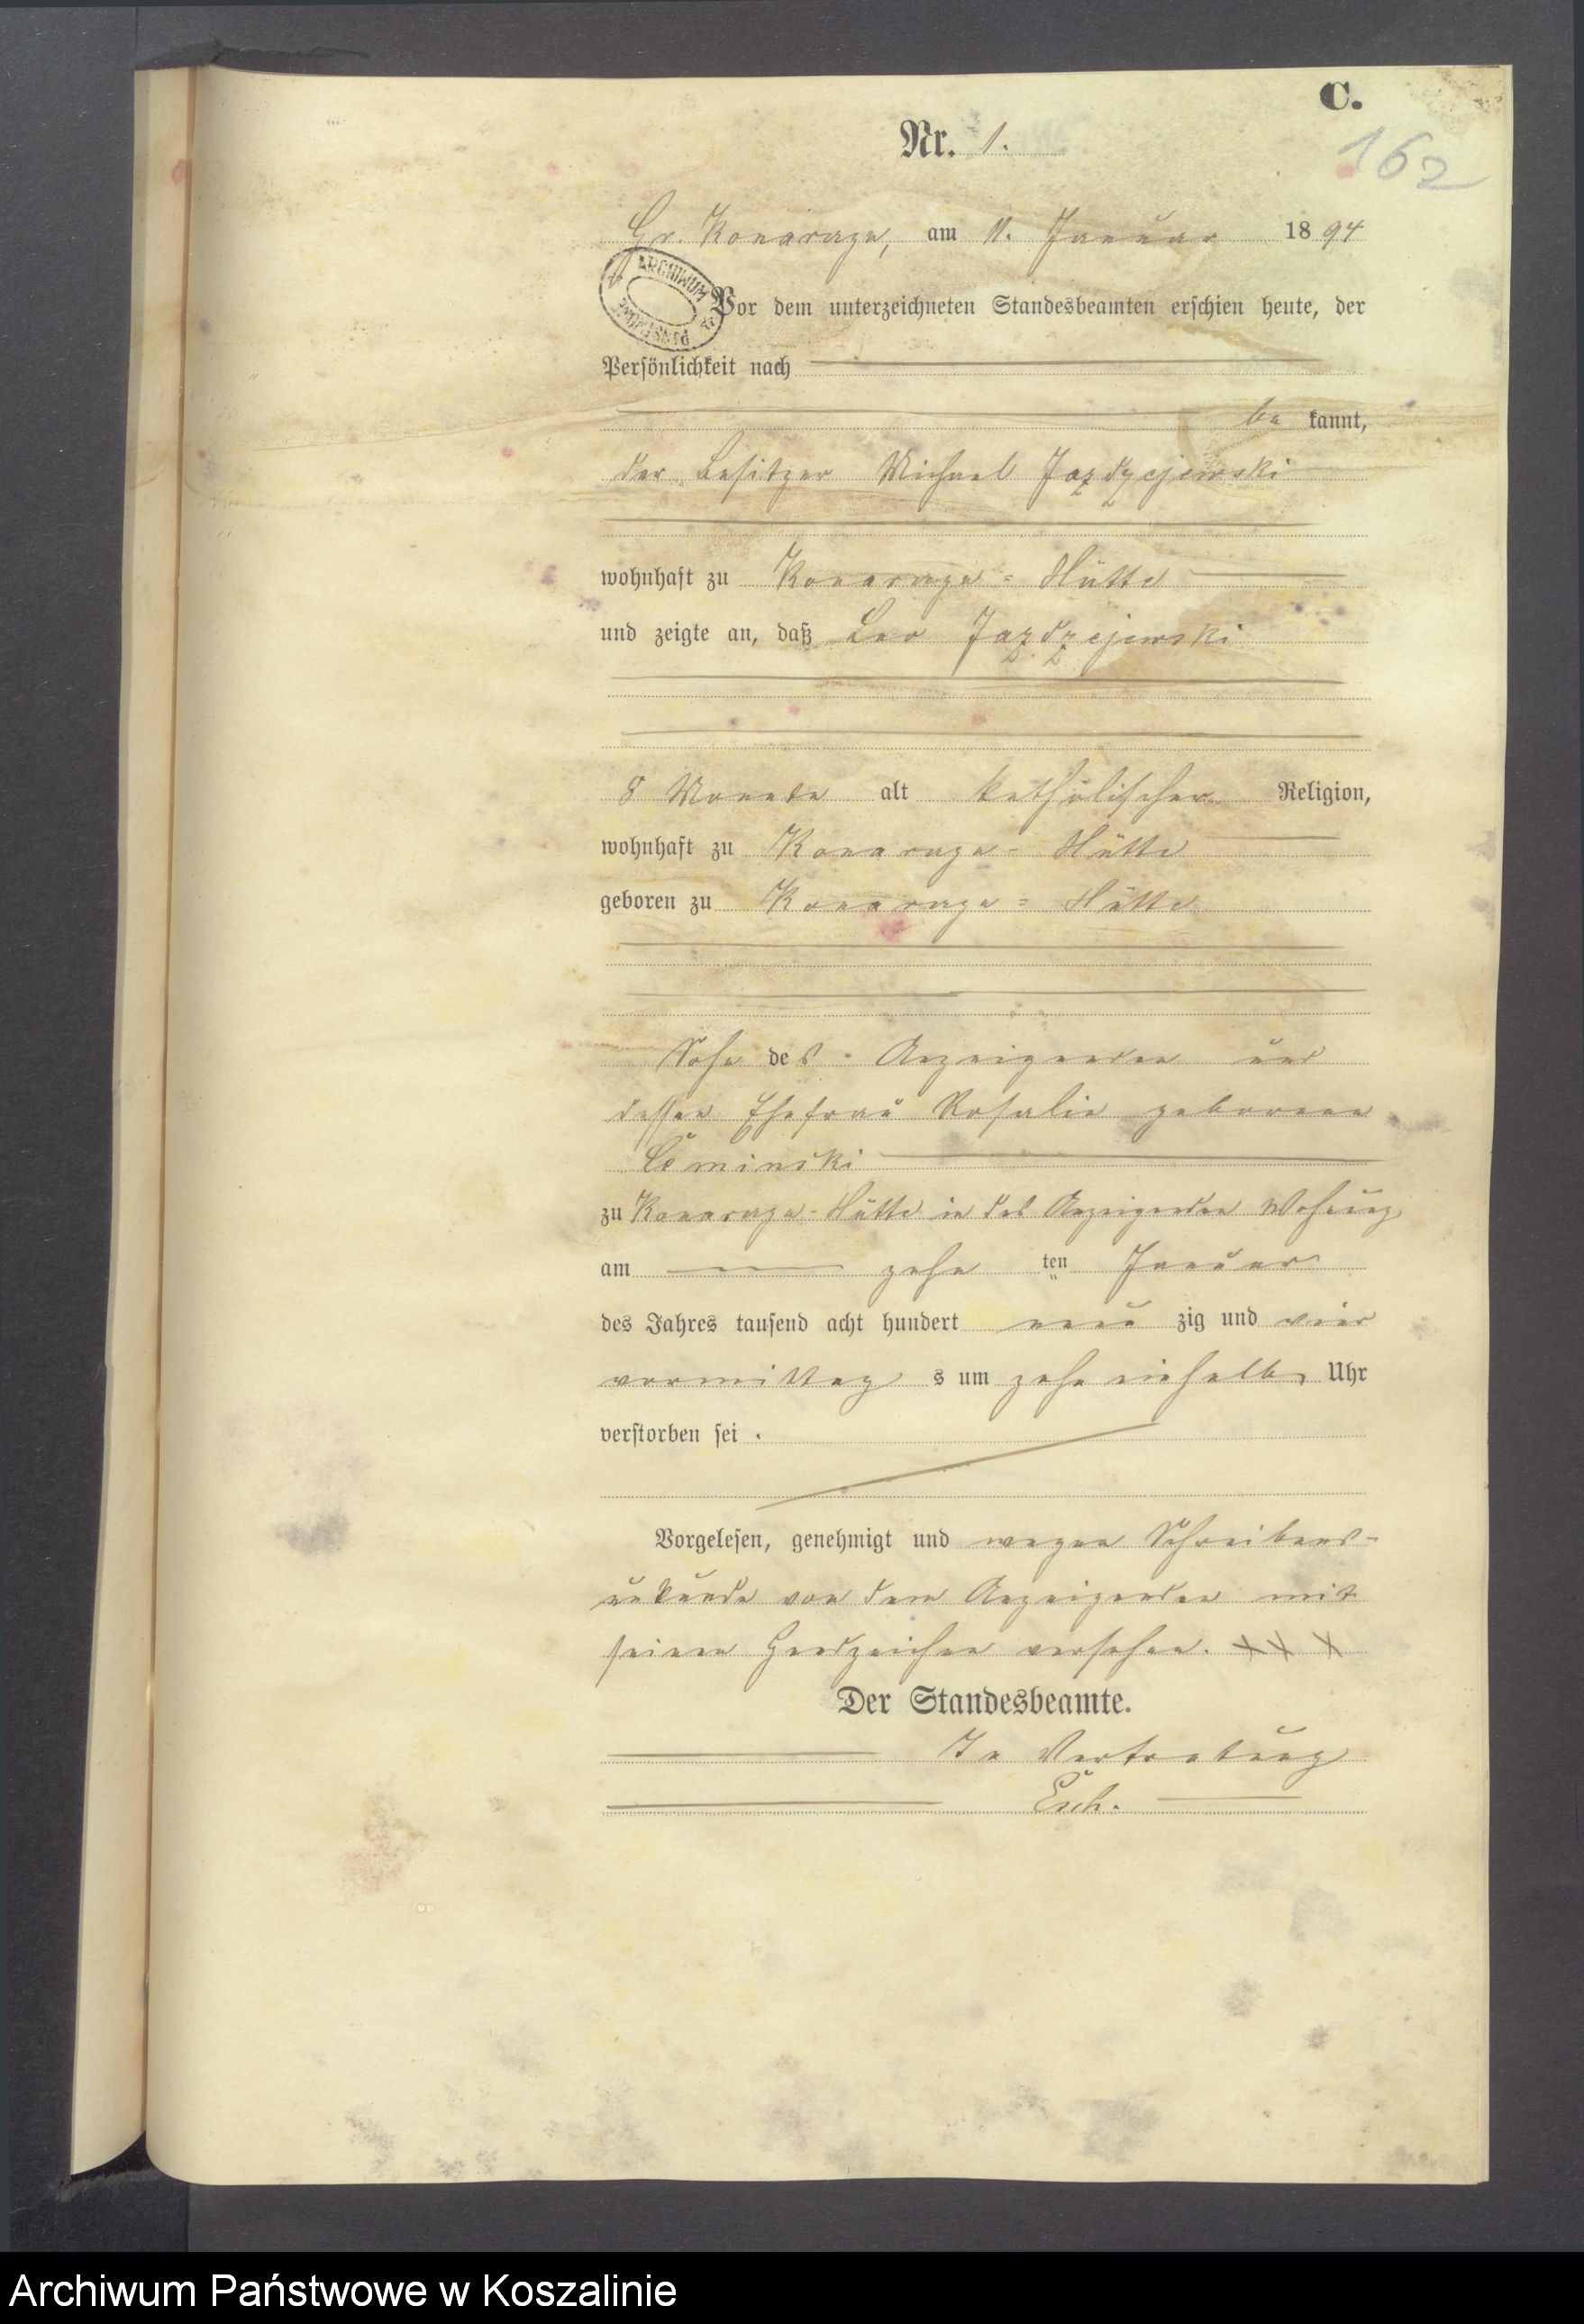 C.
Nr. 1.
162
Gr. Konarczyn, am 11. Januar 1894
ARCHIWUM
Vor dem unterzeichneten Standesbeamten erschien heute, der
Persönlichkeit nach
be kannt,
der Besitzer Michael Jazdzejewski
wohnhaft zu Konarczyn-Hütte
und zeigte an, daß Leo Jazdzejewski
8 Monate alt katholischer Religion,
wohnhaft zu Hütte
geboren zu Hütte
Sohn des Anzeigenden und
dessen Ehefrau Rosalie geborene
zu Hütte in des Anzeigenden Wohnung
am zehn ten Januar
des Jahres tausend acht hundert neun zig und vier
vormittag s um zehn einhalb Uhr
verstorben sei.
Vorgelesen, genehmigt und wegen Schreibens-
unkunde von dem Anzeigenden mit
seinem Handzeichen versehen. XX X
Der Standesbeamte.
In Vertretung
Archiwum Państwowe w Koszalinie